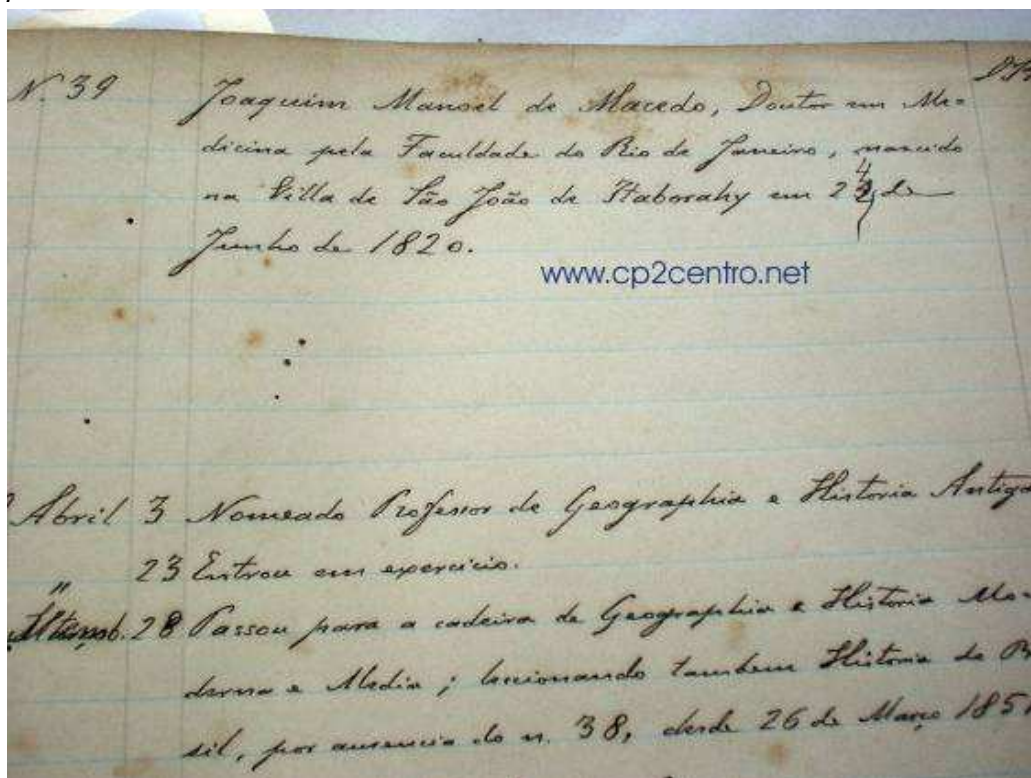 N. 39 Joaquim Manoel de Macedo, Doutor em Me=
dicina pela Faculdade do Rio de Janeiro, nascido
na Villa de São João de Itaborahy em 24 de
Junho de 1820.
www.cp2centro.net
Abril 3 Nomeado Professor de Geographia e Historia Antiga
" 23 Entrou em exercicio.
28 Passou para a cadeira de Geographia e Historia Mo-
derna e Media; leccionando tambem Historia do
sil, por ausencia do n. 38, desde 26 de Março 185